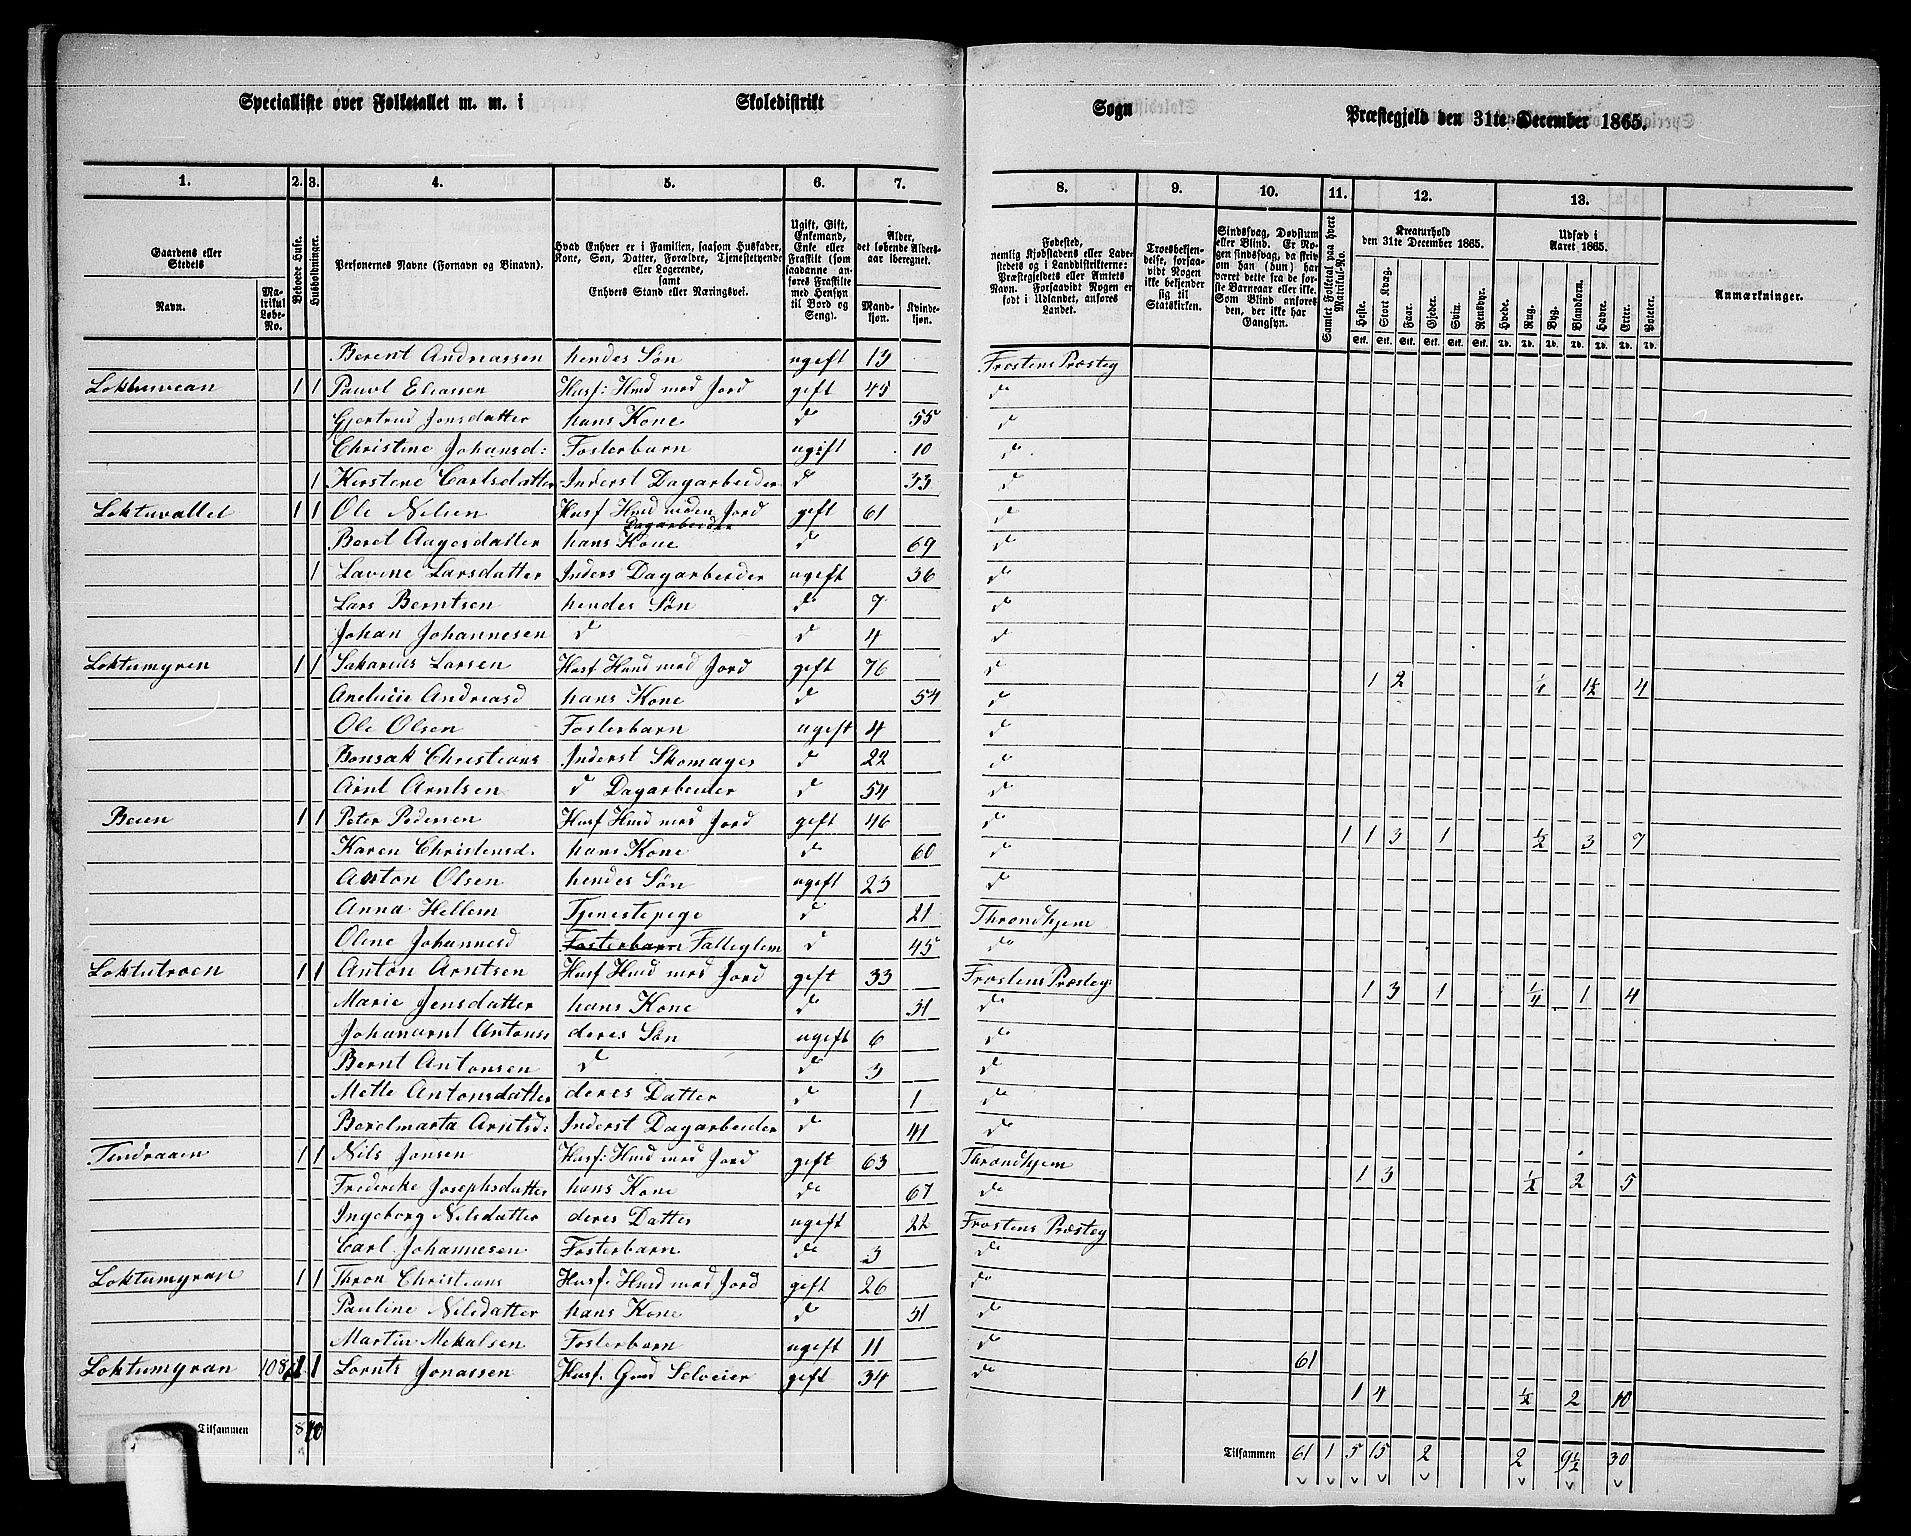 Specialliste over Folketallet m. m. i Skoledistrikt Sogn Præstegjeld den 31te December 1865.
1. 2. 3. 4. 5. 6. 7. 8. 9. 10. 11. 12. 13.
Gaardens eller Stedets Navn. Matrikul Løbe-No. Beboede Huse. Husholdninger. Personernes Navne (Fornavn og Binavn). Hvad Enhver er i Familien, saasom Husfader, Kone, Søn, Datter, Forældre, Tjenestetyende eller Logerende, samt Enhvers Stand eller Næringsvei. Ugift, Gift, Enkemand, Enke eller Fraskilt (som saadanne anføres Fraskilte med Hensyn til Bord og Seng). Alder, det løbende Aldersaar iberegnet. Mandkjøn. Kvindekjøn.
Fødested, nemlig Kjøbstadens eller Ladestedets og i Landdistrikterne: Præstegjeldets eller Amtets Navn. Forsaavidt Nogen er født i Udlandet, anføres Landet. Troesbekjendelse, forsaavidt Nogen ikke bekjender sig til Statskirken. Sindssvag, Døvstum eller Blind. Er Nogen sindssvag, da skriv om han (hun) har været dette fra de første Barneaar eller ikke. Som Blind anføres den, der ikke har Gangsyn. Samlet Folketal paa hvert Matrikul-No. Kreaturhold den 31te December 1865. Heste. Stort Kvæg. Faar. Gjeder. Svin. Rensdyr. Udsæd i Aaret 1865. Hvede. Rug. Byg. Blandkorn. Havre. Erter. Poteter. Anmærkninger.
Berent Andreassen hendes Søn ugift 13 Frostens Præsteg
Loktuvean 1 1 Pauvl Eliassen Husf: Hmd med Jord gift 45 do
Gjertrud Jonsdatter hans Kone d 55 do
Christine Johansd: Fosterbarn ugift 10 do
1 Kirstene Carlsdatter Inderst Dagarbeider d 33 do
Loktuvallet 1 1 Ole Nilsen Husf Hmd uden Jord Dagarbeider gift 61 do
Beret Aagesdatter hans Kone d 69 do
1 Lavine Larsdatter Inders Dagarbeider ugift 36 do
Lars Berntsen hendes Søn d 7 do
Johan Johannesen d d 4 do
Loktumyren 1 1 Sakarias Larsen Husf Hmd med Jord gift 76 do 1 2 ¼ 1½ 4
Andreasd hans Kone d 54 do
Ole Olsen Fosterbarn ugift 4 do
Bonsak Christians Inderst Skomager d 22 do
Arnt Arntsen d Dagarbeider d 54 do
Beien 1 1 Peter Pedersen Husf Hmd med Jord gift 46 do 1 1 3 1 ½ 3 7
Karen Christensd. hans Kone d 60 do
Anton Olsen hendes Søn ugift 23 do
Anna Hellem Tjenestepige d 21 Throndhjem
Oline Johannesd Fosterbarn Fattiglem d 45 do
Loktutroen 1 1 Anton Arntsen Husf Hmd med Jord gift 33 Frostens Præsteg: 1 3 1 ¼ 1 4
Marie Jensdatter hans Kone d 31 do
Johanarnt Antons deres Søn ugift 6 do
Bernt Antonsen d d 3 do
Mette Antonsdatter deres Datter d 1 do
Beretmarta Arntsd: Inderst Dagarbeider d 41 do
Tindraaen 1 1 Nils Jonsen Husf: Hmd med Jord gift 63 Throndhjem 1 3 ½ 2 5
Frederike Josephsdatter hans Kone do 67 do
Ingeborg Nilsdatter deres Datter ugift 22 Frostens Præsteg
Carl Johannesen Fosterbarn do 3 do
Loktumyran 1 1 Thron Christians Husf: Hmd med Jord gift 26 do
Pauline Nilsdatter hans Kone d 31 do
Martin Mekalsen Fosterbarn ugift 11 do 61
Loktumyran 108 1 1 Lornts Jonassen Husf. Gmd Selveier gift 34 do 1 4 ½ 2 10
Tilsammen 8 10 Tilsammen 61 1 5 15 2 2 9½ 30